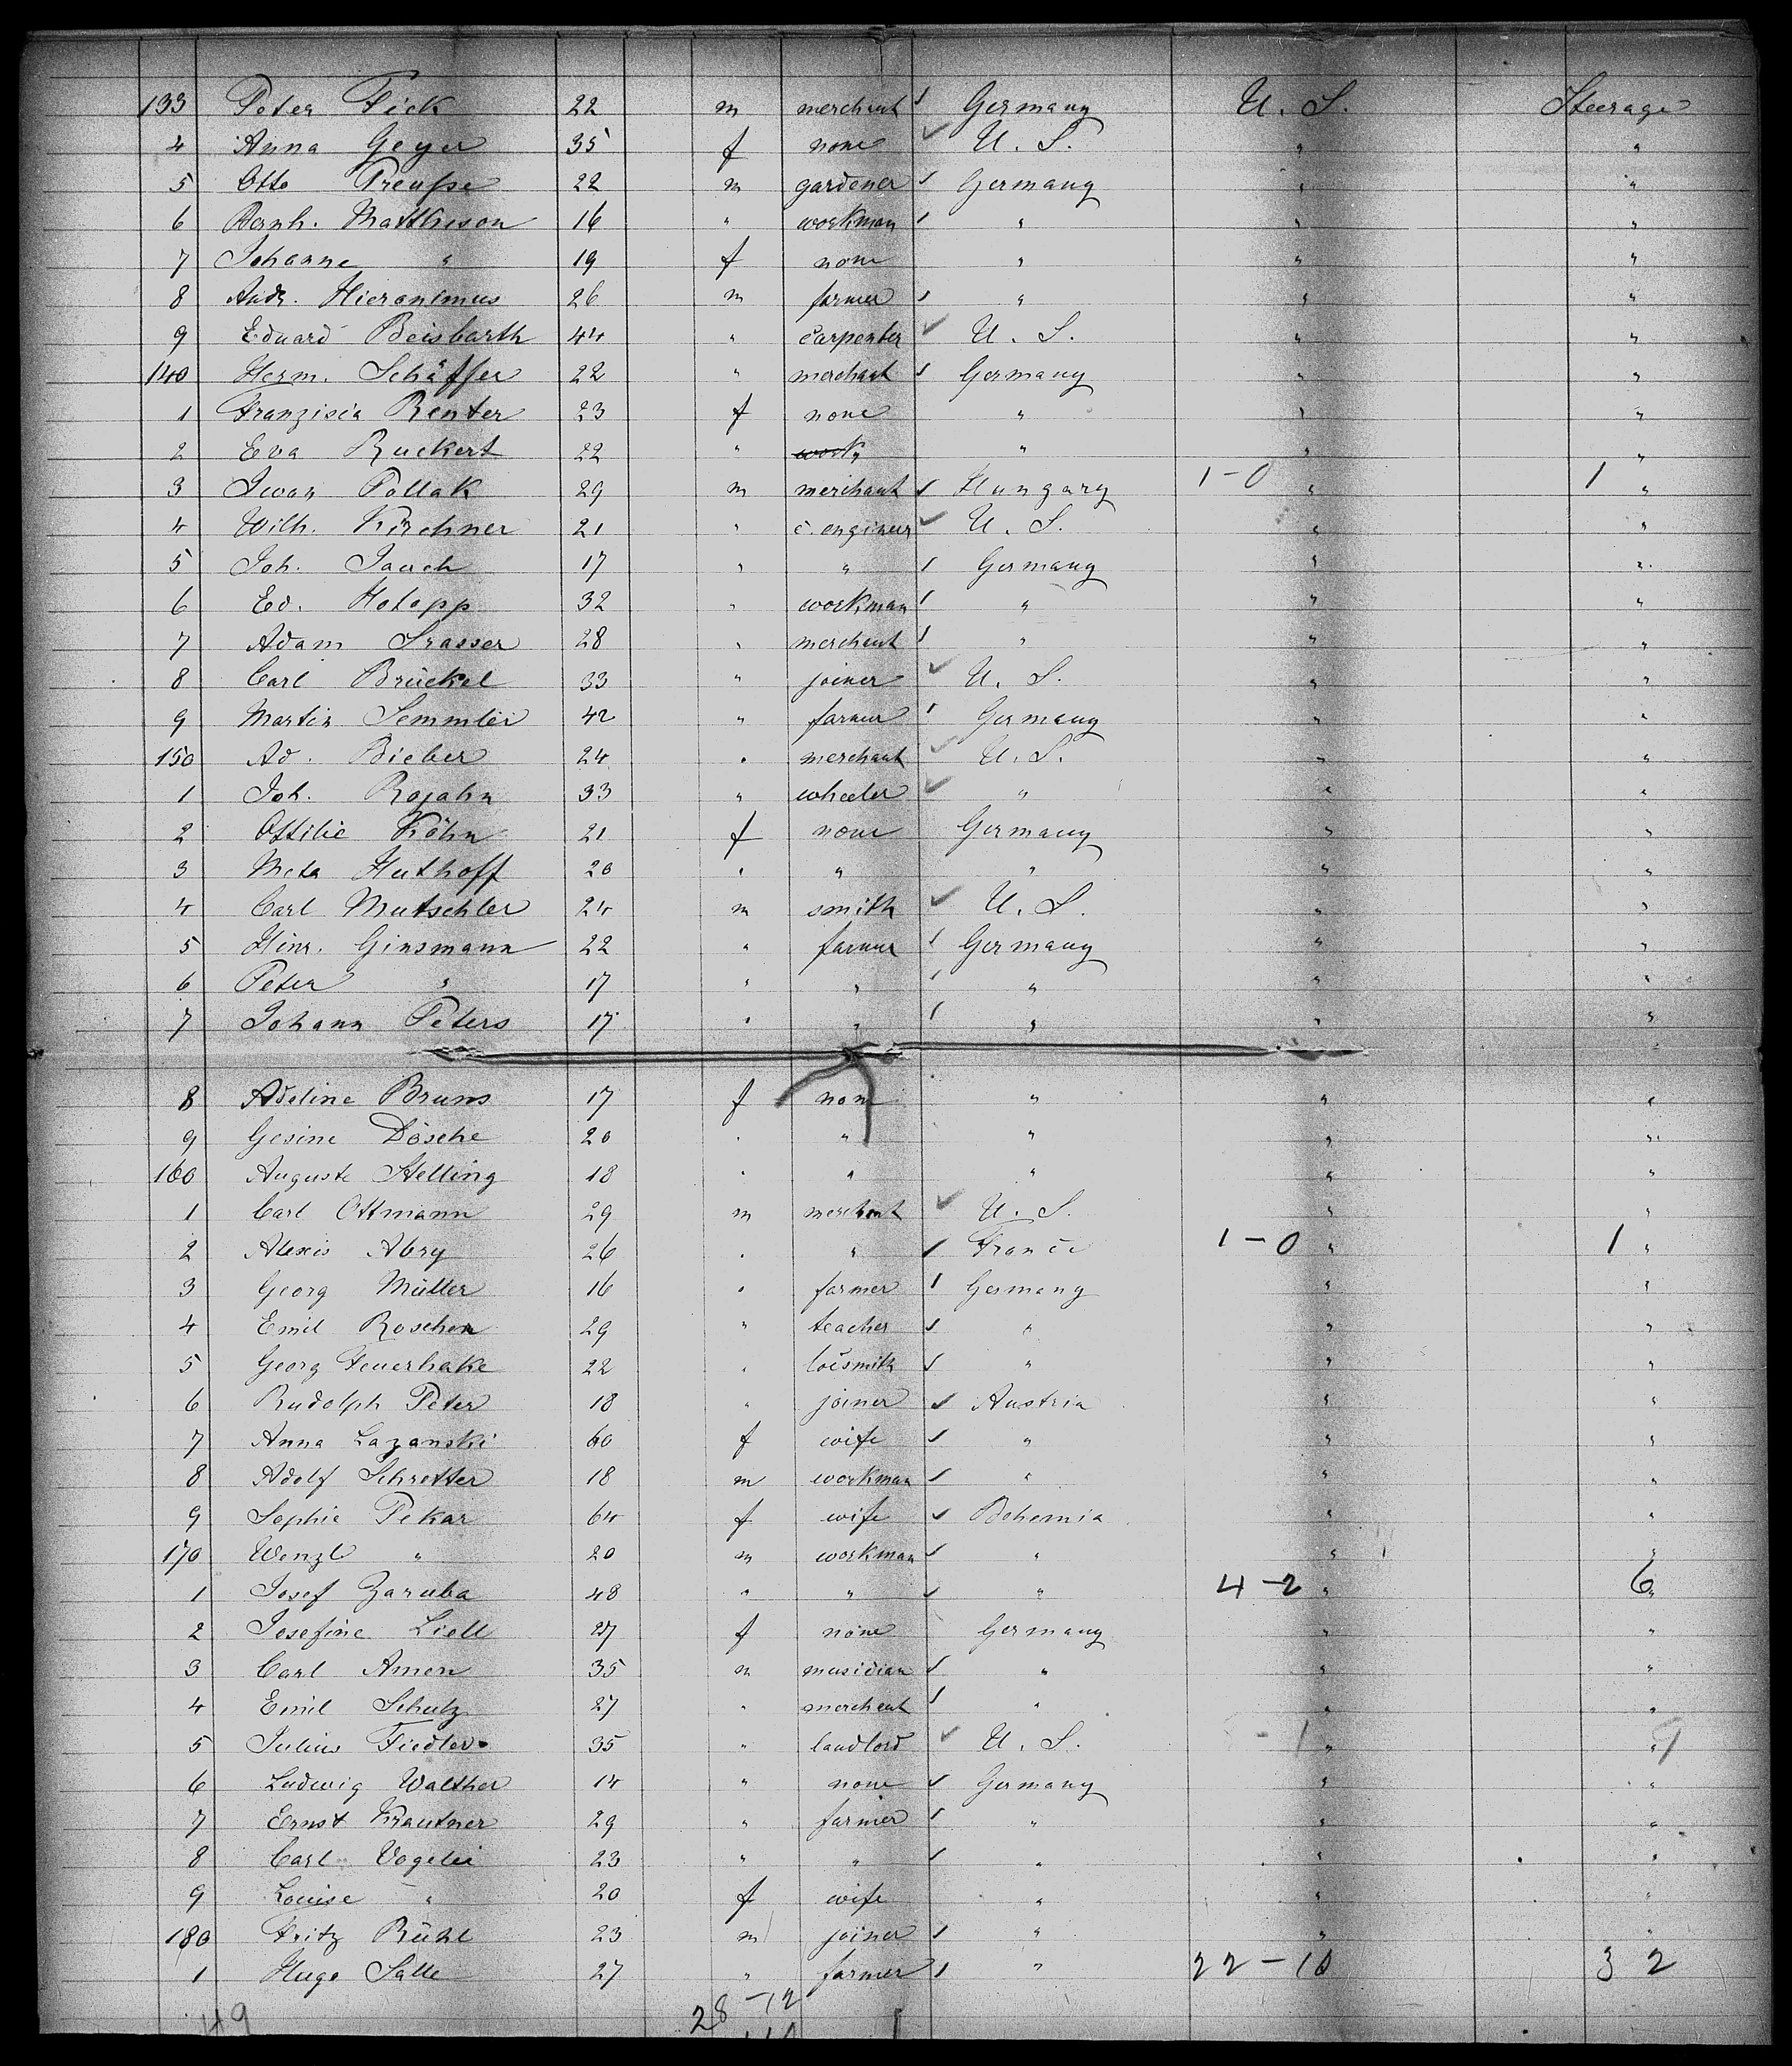 133 Peter Fick 22 m merchant Germany U. S. Steerage
4 Anna Geyer 35 f none U. S. " "
5 Otto Preußse 22 m gardener Germany " "
6 Bernh. Matthieson 16 " workman " " "
7 Johanne " 19 f none " " "
8 Andr. Hieronimus 26 m farmer " " "
9 Eduard Beisbarth 44 " carpenter U. S. " "
140 Herm. Schäffer 22 " merchant Germany " "
1 Franzisca Renter 23 f none " " "
2 Eva Ruckert 22 " work, " " "
3 Iwan Pollak 29 m merchant Hungary 1-0 " 1 "
4 Wilh. Kirchner 21 " c. engineer U. S. " "
5 Joh. Jauch 17 " " Germany " "
6 Ed. Hotopp 32 " workman " " "
7 Adam Srasser 28 " merchant " " "
8 Carl Brückel 33 " joiner U. S. " "
9 Martin Semmler 42 " farmer Germany " "
150 Ad. Bieber 24 " merchant U. S. " "
1 Joh. Rojahn 33 " wheeler " " "
2 Ottilie Köhn 21 f none Germany " "
3 Meta Huthoff 20 " " " " "
4 Carl Mutschler 24 m smith U. S. " "
5 Hinr. Ginsmann 22 " farmer Germany " "
6 Peter " 17 " " " " "
7 Johann Peters 17 " " " " "
8 Adeline Bruns 17 f none " " "
9 Gesine Dösche 20 " " " " "
160 Auguste Stelling 18 " " " " "
1 Carl Ottmann 29 m merchant U. S. " "
2 Alexis Abry 26 " " France 1-0 " 1 "
3 Georg Müller 16 " farmer Germany " "
4 Emil Roschen 29 " teacher " " "
5 Georg Feuerhake 22 " locsmith " " "
6 Rudolph Peter 18 " joiner Austria " "
7 Anna Lazanski 60 f wife " " "
8 Adolf Schretter 18 m workman " " "
9 Sophie Pekar 64 f wife Bohemia " "
170 Wenzl " 20 m workman " " "
1 Josef Zaruba 48 " " " 4-2 " 6 "
2 Josefine Liell 27 f none Germany " "
3 Carl Amen 35 m musician " " "
4 Emil Schulz 27 " merchant " " "
5 Julius Fiedler 35 " landlord U. S. - 1 " 9 "
6 Ludwig Walther 14 " none Germany " "
7 Ernst Krautner 29 " farmer " " "
8 Carl Vogelei 23 " " " " "
9 Louise " 20 f wife " " "
180 Fritz Rühl 23 m joiner " " "
1 Hugo Salle 27 " farmer " 22-10 32
49 28-12